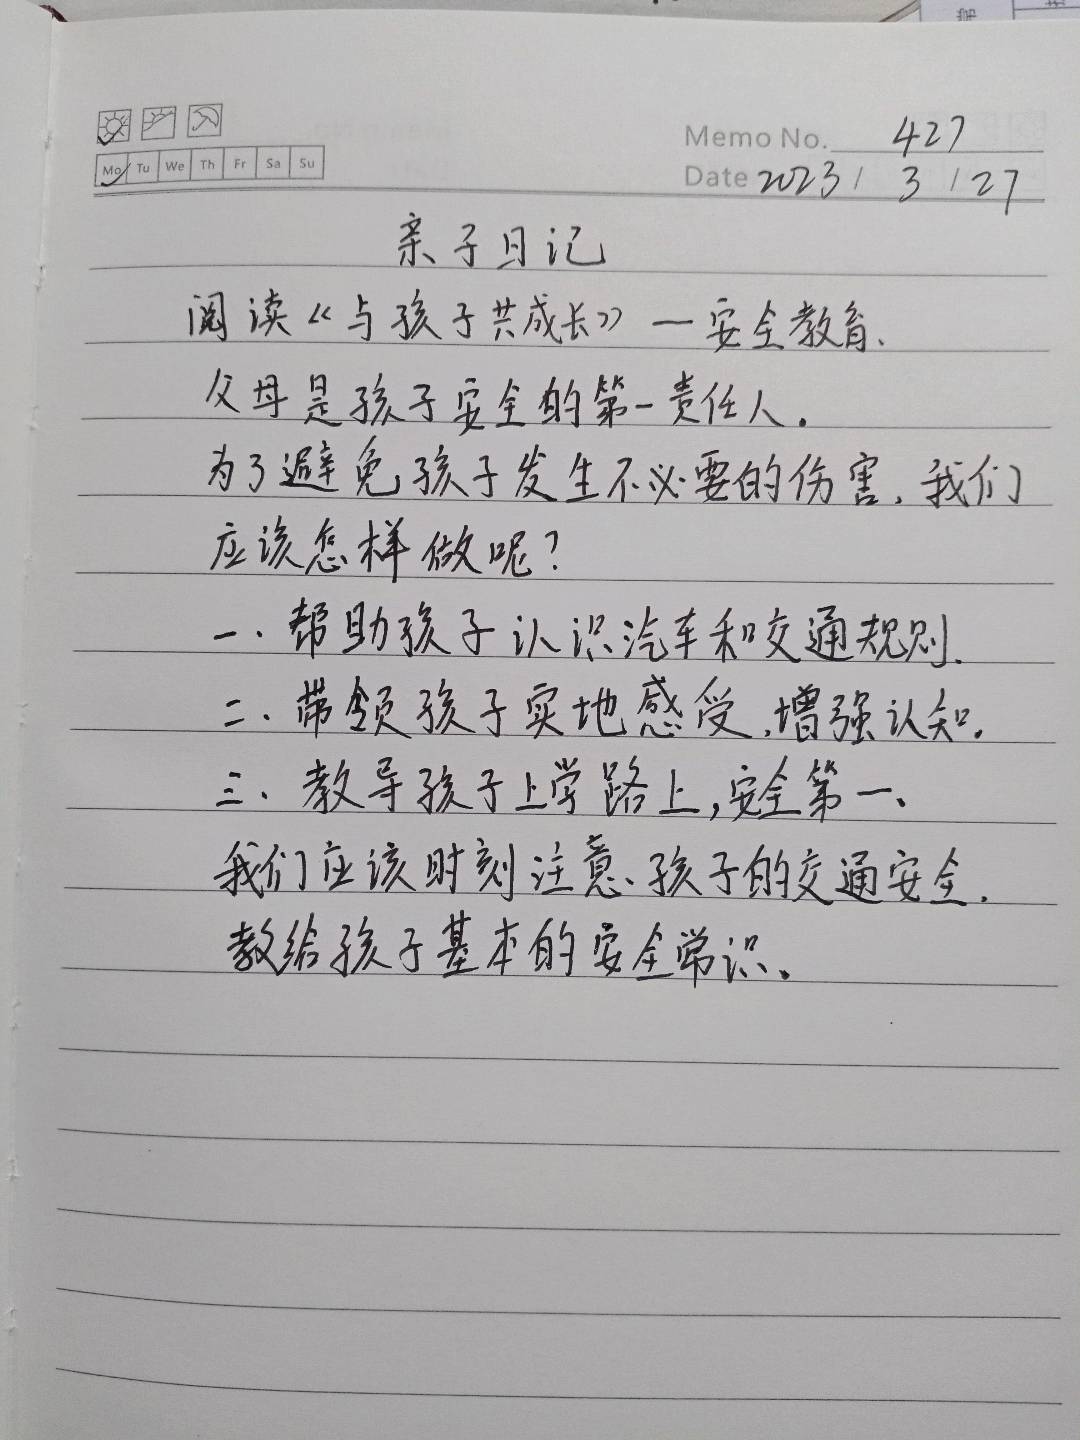 Memo No. 427
Mo Tu We Th Fr Sa Su
Date 2023 / 3 / 27
亲子日记
阅读《与孩子共成长》一安全教育.
父母是孩子安全的第一责任人.
为了避免孩子发生不必要的伤害,我们
应该怎样做呢?
一、帮助孩子认识汽车和交通规则.
二、带领孩子实地感受,增强认知.
三、教导孩子上学路上,安全第一、
我们应该时刻注意、孩子的交通安全.
教给孩子基本的安全常识.